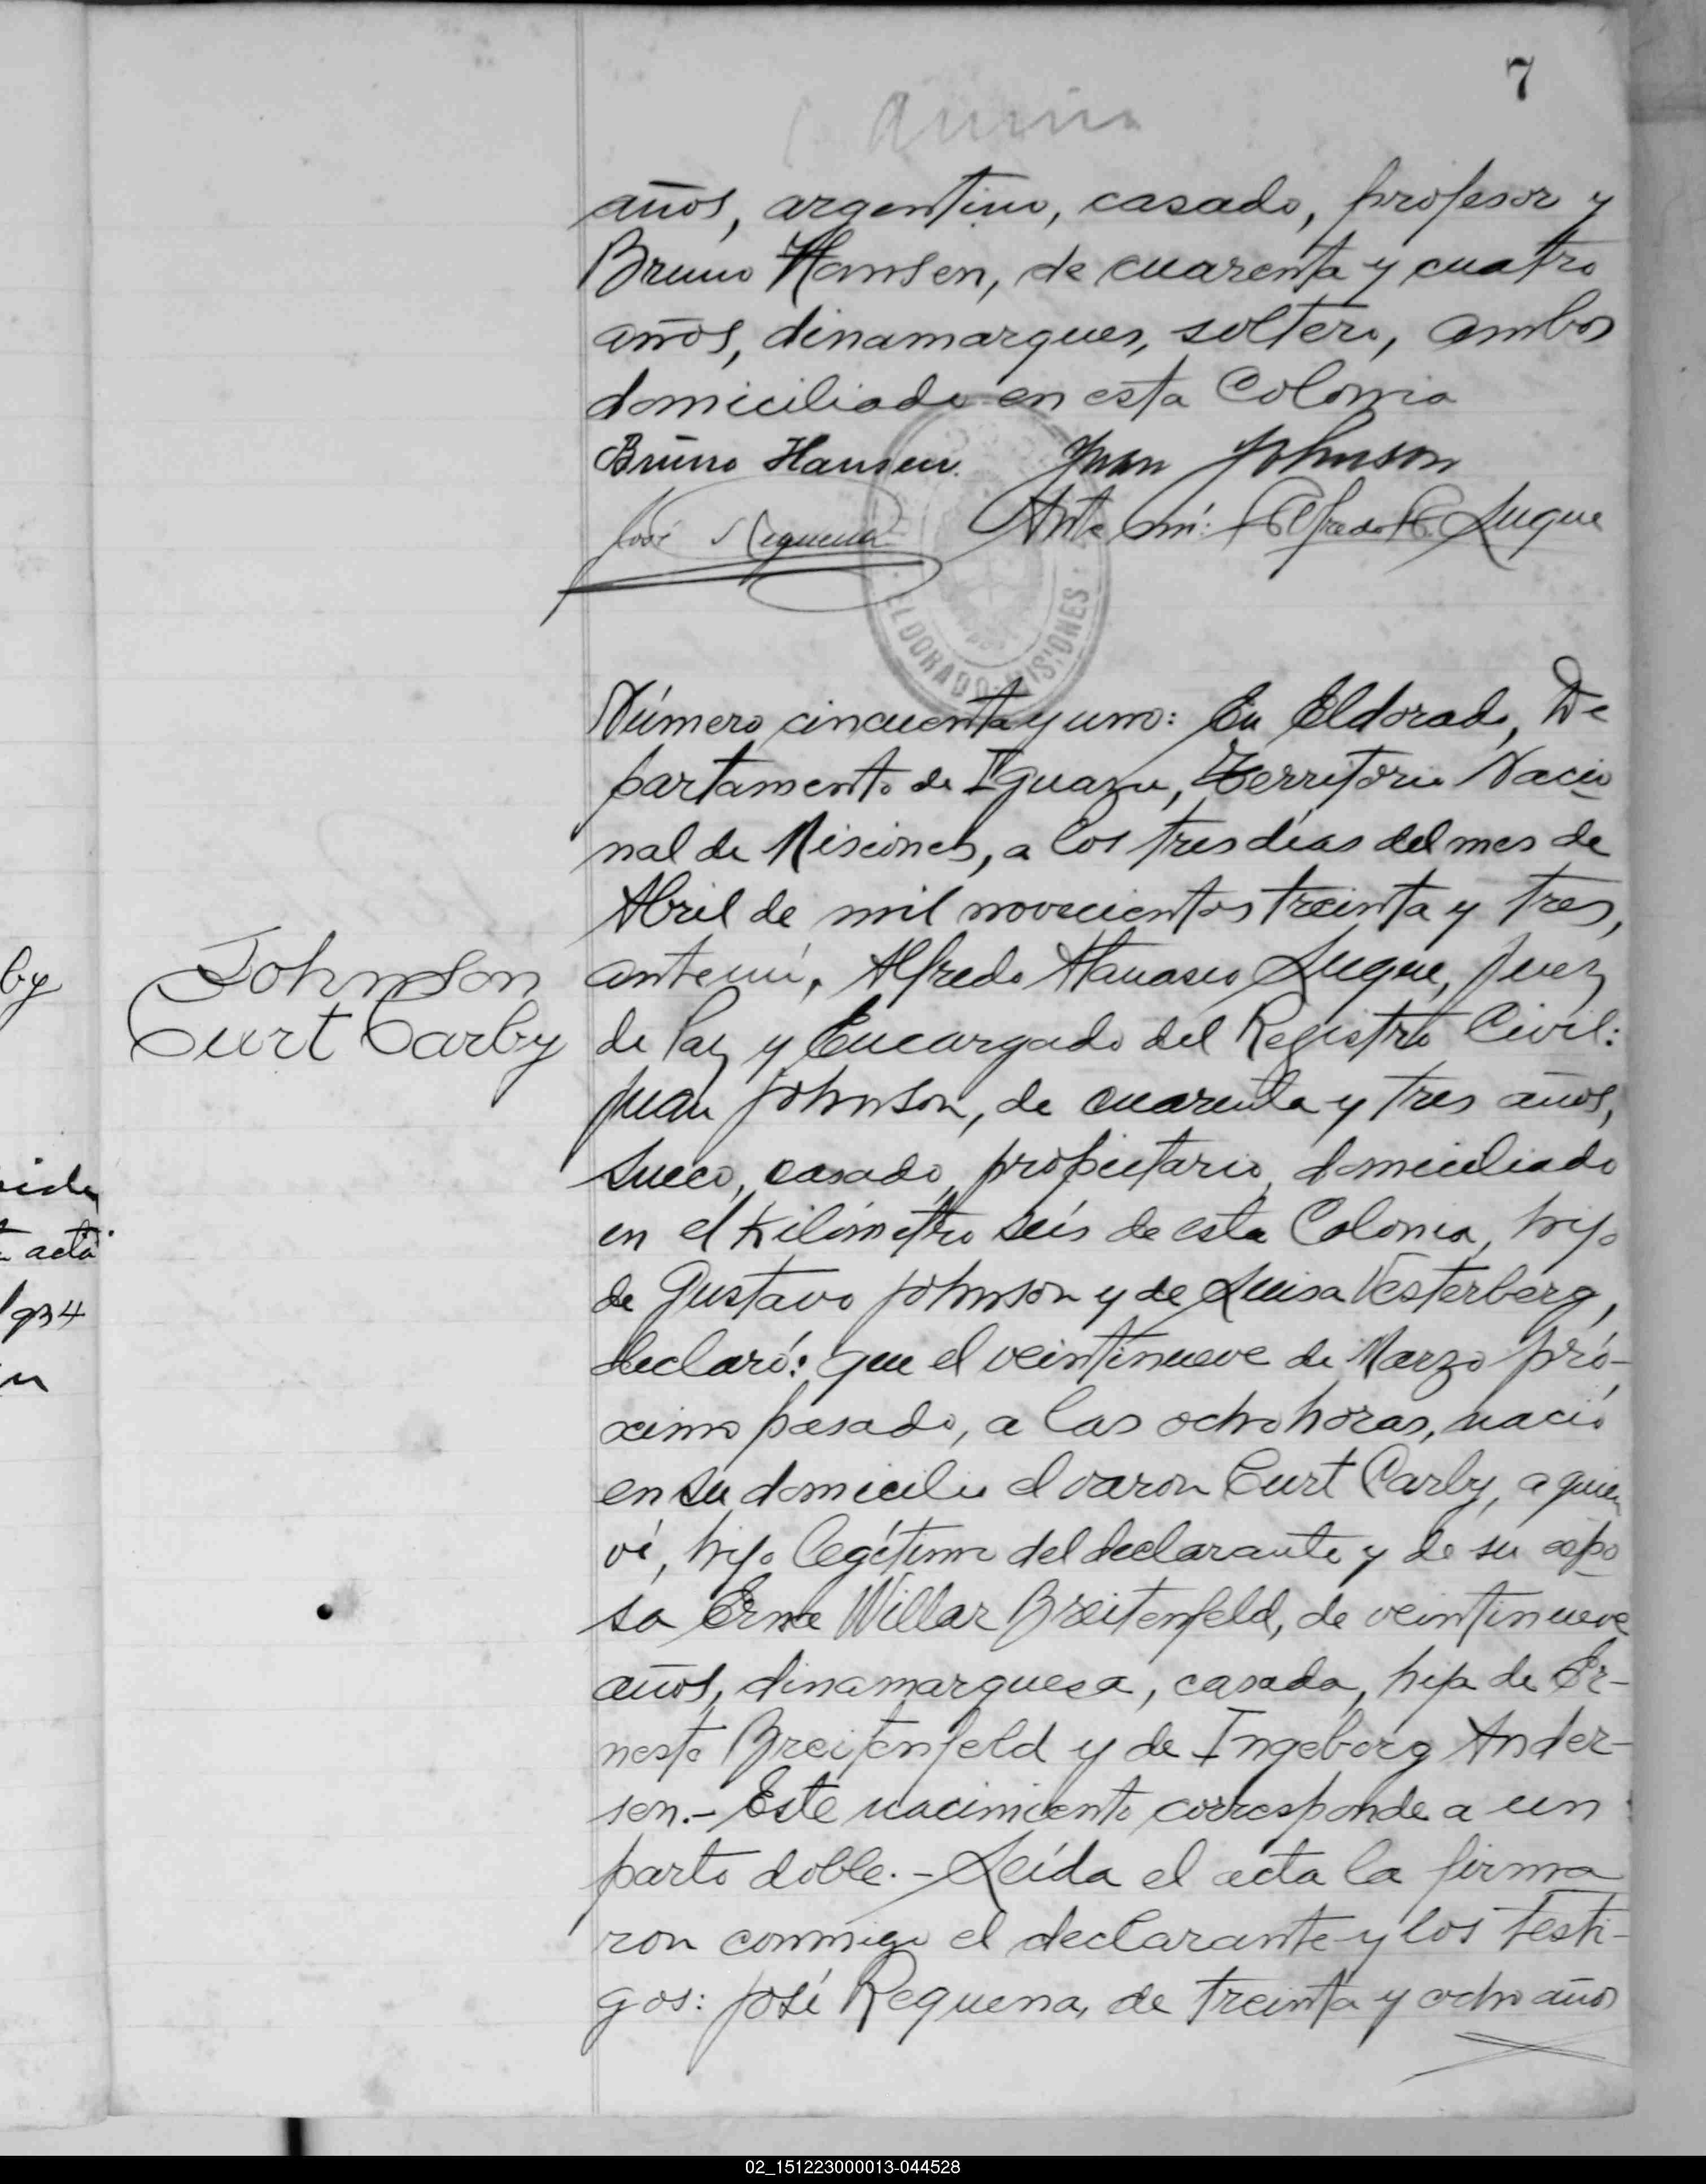 7
años, argentino, casado, profesor y
Bruno Hansen, de cuarenta y cuatro
años, dinamarques, soltero, ambos
domiciliado en esta Colonia
Bruno Hansen. Juan Johnson
José Requena Ante mí: Alfredo A. Luque
ELDORADO - MISIONES
Número cincuenta y uno: En Eldorado, De
partamento de Iguazu, Territorio Nacio
nal de Misiones, a los tres días del mes de
Abril de mil novecientos treinta y tres,
ante mí, Alfredo Atanasio Luque, Juez
de Paz y Encargado del Registro Civil:
Juan Johnson, de cuarenta y tres años,
sueco, casado, propietario, domiciliado
en el Kilómetro seis de esta Colonia, hijo
de Gustavo Johnson y de Luisa Vesterberg,
declaró: que el veintinueve de Marzo pró-
ximo pasado, a las ocho horas, nació
en su domicilio el varon Curt Carby, a quien
ví, hijo legítimo del declarante y de su espo
sa Erna Willar Breitenfeld, de veintinueve
años, dinamarquesa, casada, hija de Er-
nesto Breitenfeld y de Ingeborg Ander-
sen.- Este nacimiento corresponde a un
parto doble.- Leída el acta la firma
ron conmigo el declarante y los testi-
gos: José Requena, de treinta y ocho años
Johnson
Curt Carby
by
acta
1934
02_151223000013-044528